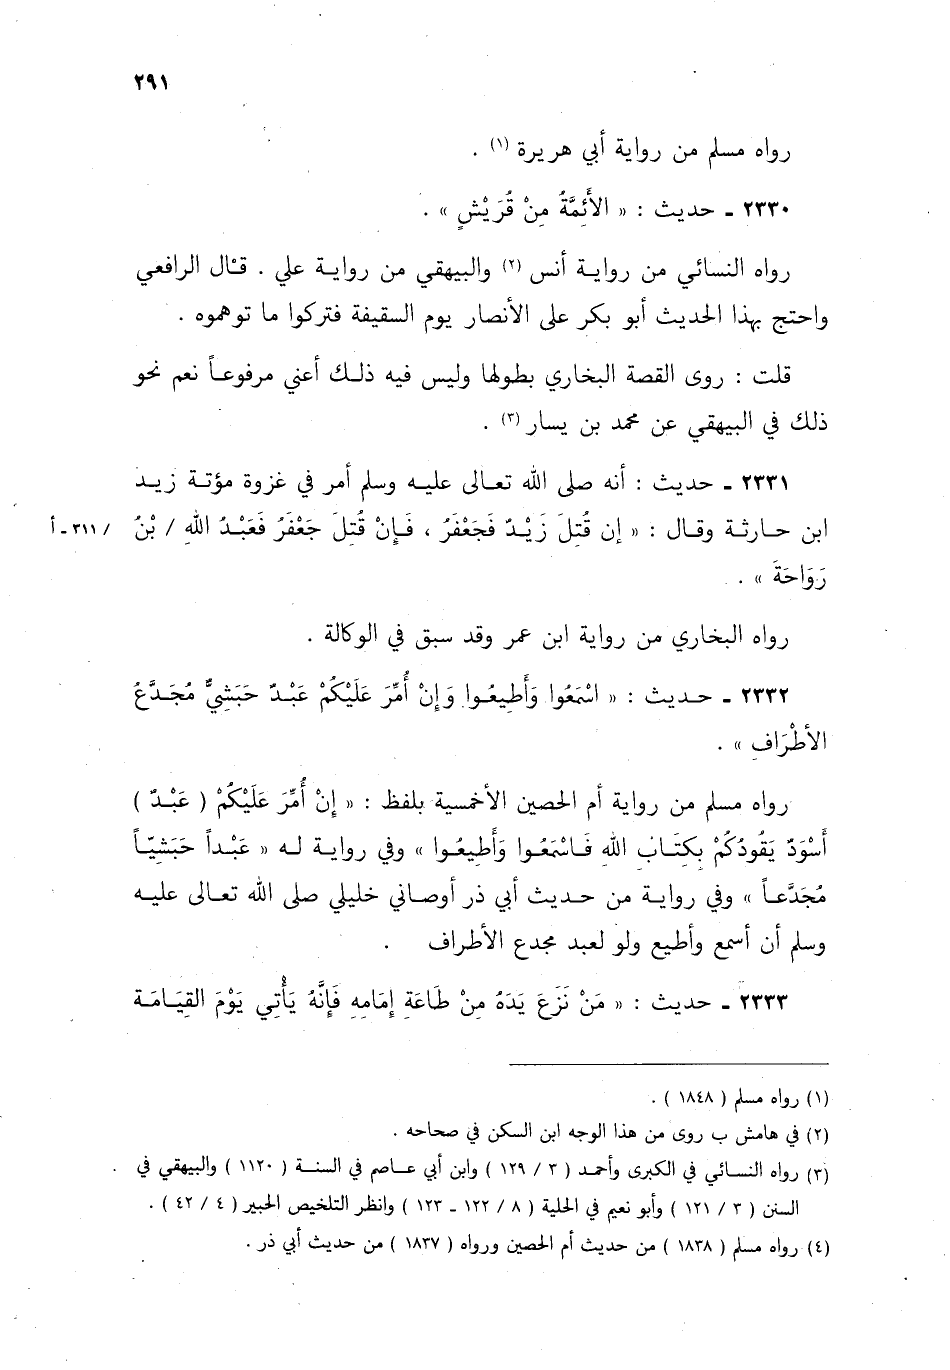 ٢٩١
رواه مسلم من رواية أبي هريرة (١) .
٢٣٣٠ ـ حديث : « الأَئِمَّةُ مِنْ قُرَيْشٍ » .
رواه النسائي من رواية أنس (٢) والبيهقي من رواية علي . قال الرافعي
واحتج بهذا الحديث أبو بكر على الأنصار يوم السقيفة فتركوا ما توهموه .
قلت : روى القصة البخاري بطولها وليس فيه ذلك أعني مرفوعاً نعم نحو
ذلك في البيهقي عن محمد بن يسار (٣) .
٢٣٣١ ـ حديث : أنه صلى الله تعالى عليه وسلم أمر في غزوة مؤتة زيد
ابن حارثة وقال : « إن قُتِلَ زَيْدٌ فَجَعْفَرُ ، فَإِنْ قُتِلَ جَعْفَرُ فَعَبْدُ اللهِ / بْنُ / ٣١١ ـ أ
رَوَاحَةَ » .
رواه البخاري من رواية ابن عمر وقد سبق في الوكالة .
٢٣٣٢ ـ حديث : « اسْمَعُوا وَأَطِيعُوا وَإِنْ أُمِّرَ عَلَيْكُمْ عَبْدٌ حَبَشِيٌّ مُجَدَّعُ
الأَطْرَافِ » .
رواه مسلم من رواية أم الحصين الأخمسية بلفظ : « إِنْ أُمِّرَ عَلَيْكُمْ ( عَبْدٌ )
أَسْوَدٌ يَقُودُكُمْ بِكِتَابِ اللهِ فَاسْمَعُوا وَأَطِيعُوا » وفي رواية له « عَبْداً حَبَشِيّاً
مُجَدَّعاً » وفي رواية من حديث أبي ذر أوصاني خليلي صلى الله تعالى عليه
وسلم أن أسمع وأطيع ولو لعبد مجدع الأطراف .
٢٣٣٣ ـ حديث : « مَنْ نَزَعَ يَدَهُ مِنْ طَاعَةِ إِمَامِهِ فَإِنَّهُ يَأْتِي يَوْمَ القِيَامَة
(١) رواه مسلم ( ١٨٤٨ ) .
(٢) في هامش ب روى من هذا الوجه ابن السكن في صحاحه .
(٣) رواه النسائي في الكبرى وأحمد ( ٣ / ١٢٩ ) وابن أبي عاصم في السنة ( ١١٢٠ ) والبيهقي في
السنن ( ٣ / ١٢١ ) وأبو نعيم في الحلية ( ٨ / ١٢٢ ـ ١٢٣ ) وانظر التلخيص الحبير ( ٤ / ٤٢ ) .
(٤) رواه مسلم ( ١٨٣٨ ) من حديث أم الحصين ورواه ( ١٨٣٧ ) من حديث أبي ذر .